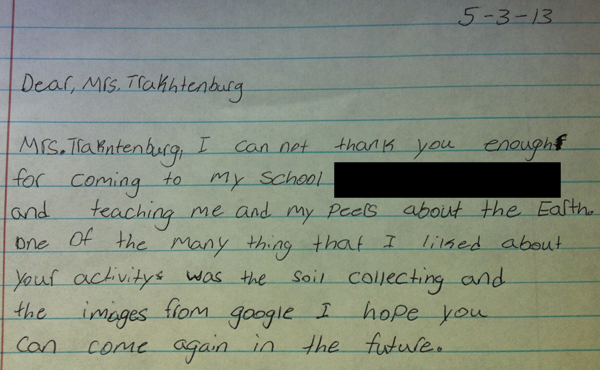 5-3-13
Dear, Mrs. Trakhtenburg
Mrs. Trakntenburg, I can not thank you enough
for coming to my school
and teaching me and my peers about the Earth.
One of the many thing that I liked about
your activitys was the soil collecting and
the images from google I hope you
can come again in the future.